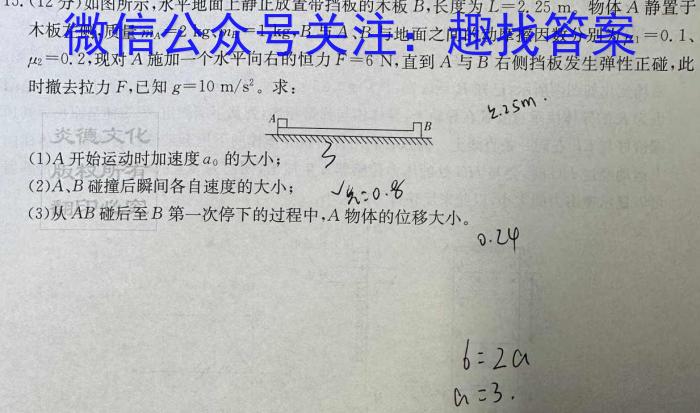 15.(12分)如图所示,水平地面上静止放置带挡板的木板B,长度为L=2.25 m。物体A静置于
木板左侧,质量m_A=2 kg、m_B=1 kg,B与A、B与地面之间的动摩擦因数分别为μ₁=0.1、
微信公众号关注:趣找答案
μ₂=0.2,现对A施加一个水平向右的恒力F=6 N,直到A与B右侧挡板发生弹性正碰,此
时撤去拉力F,已知g=10 m/s²。求:
2.25m.
A
B
炎德文化
(1)A开始运动时加速度a₀的大小;
3
版权所有
(2)A、B碰撞后瞬间各自速度的大小;
=0.8
翻印必究
(3)从AB碰后至B第一次停下的过程中,A物体的位移大小。
0.24
6=2a
a=3.